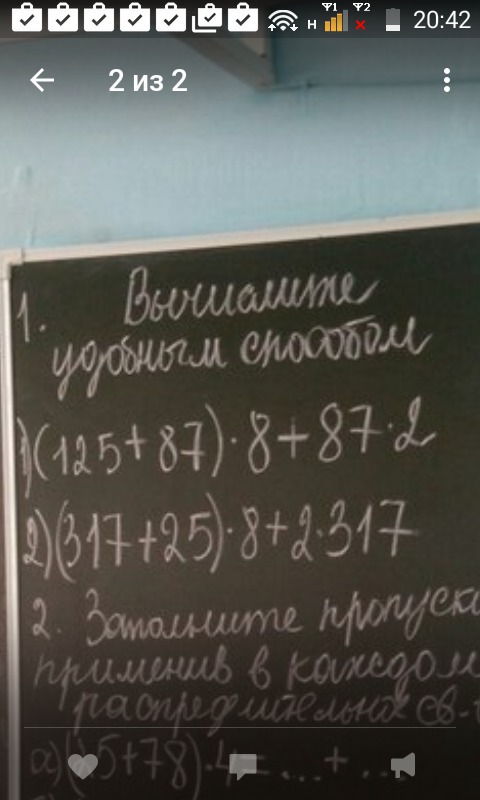 Ψ1 Ψ2
H 20:42
2 из 2
1. Вычислите
удобным способом
1) (125+87)·8+87·2
2) (317+25)·8+2·317
2. Заполните пропуски
применив в каждом
распределительное св-
а) (25+78)·4=...+...